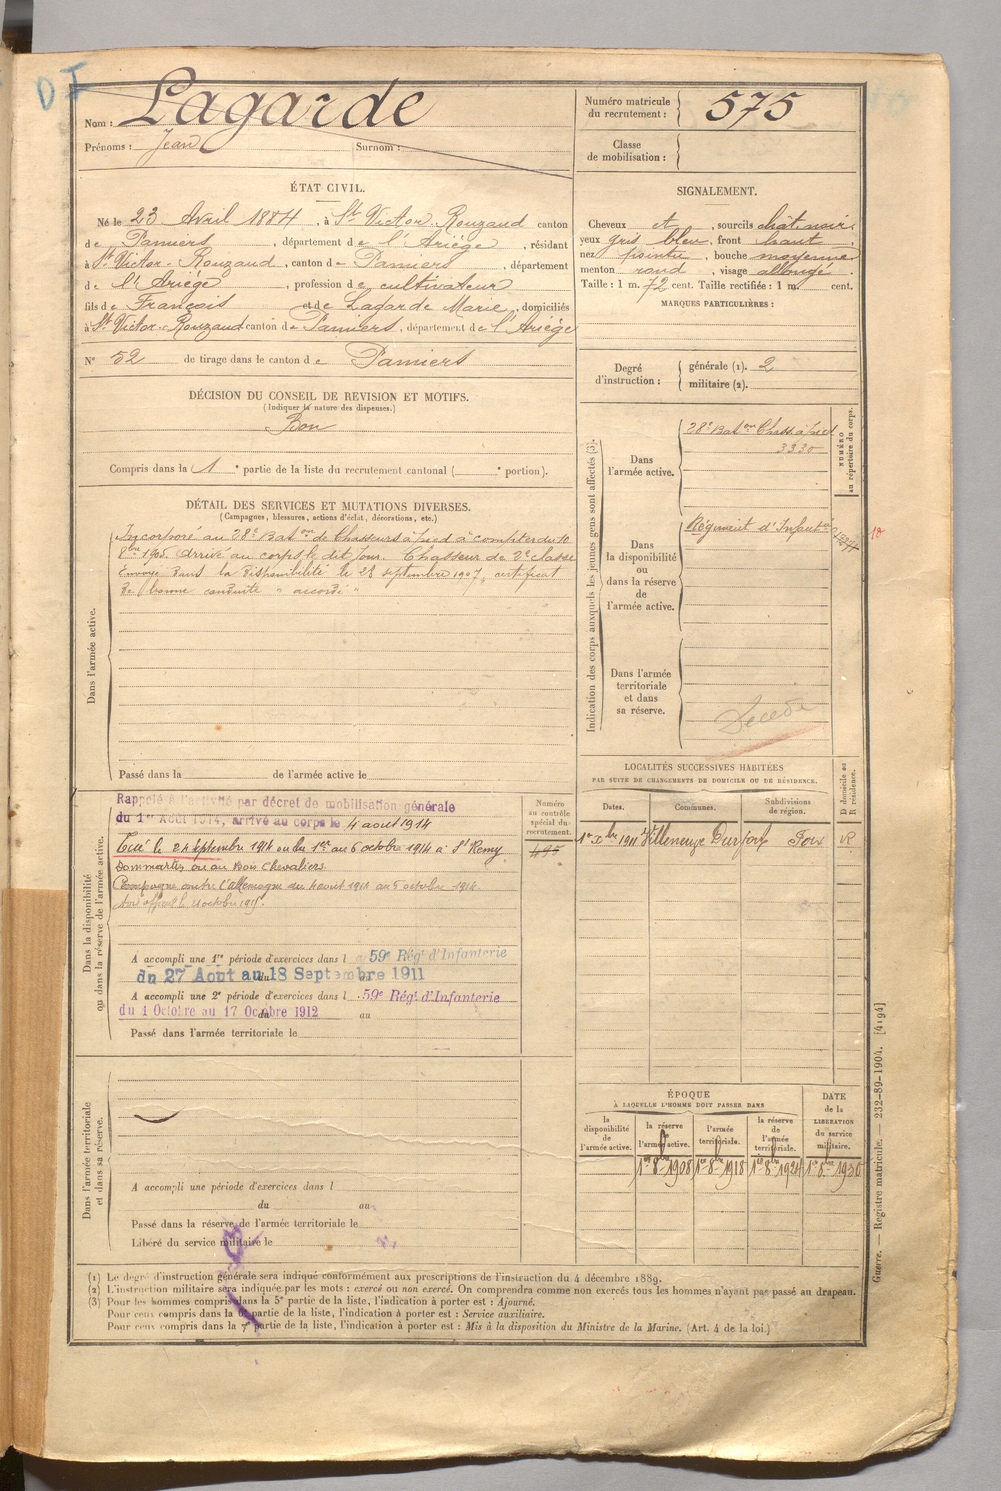 D I
Nom : Lagarde
Prénoms : Jean Surnom :
Numéro matricule
du recrutement : 575
Classe
de mobilisation :
ÉTAT CIVIL.
Né le 23 Avril 1884, à St Victor Rouzaud canton
de Pamiers, département de l'Ariège, résidant
à St Victor-Rouzaud, canton de Pamiers, département
de l'Ariège, profession de cultivateur
fils de François et de Lagarde Marie, domiciliés
à St Victor-Rouzaud canton de Pamiers, département de l'Ariège
N° 52 de tirage dans le canton de Pamiers
SIGNALEMENT.
Cheveux et, sourcils chât. noir
yeux gris bleu, front haut,
nez pointu, bouche moyenne
menton rond, visage allongé.
Taille : 1 m. 72 cent. Taille rectifiée : 1 m. cent.
MARQUES PARTICULIÈRES :
Degré
d'instruction :
générale (1). 2
militaire (2).
DÉCISION DU CONSEIL DE REVISION ET MOTIFS.
(Indiquer la nature des dispenses.)
Bon
Compris dans la 1e partie de la liste du recrutement cantonal (e portion).
DÉTAIL DES SERVICES ET MUTATIONS DIVERSES.
(Campagnes, blessures, actions d'éclat, décorations, etc.)
Dans l'armée active.
Incorporé au 28e Baton de Chasseurs à pied à compter du 10
8bre 1905. Arrivé au corps le dit jour. Chasseur de 2e classe
Envoyé dans la disponibilité le 28 septembre 1907, certificat
de bonne conduite "accordé"
Passé dans la de l'armée active le
Indication des corps auxquels les jeunes gens sont affectés (3).
NUMÉRO
au répertoire du corps.
Dans
l'armée active.
28e Baton Chass. à pied
3330
Dans
la disponibilité
ou
dans la réserve
de
l'armée active.
Régiment d'Infantie
10
Dans l'armée
territoriale
et dans
sa réserve.
Décédé
Dans la disponibilité
ou dans la réserve de l'armée active.
Rappelé à l'activité par décret de mobilisation générale
du 1er Août 1914, arrivé au corps le 4 aout 1914
Tué le 24 septembre 1914 ou du 1er au 5 octobre 1914 à St Remy
Dommartin ou au Bois Chevaliers.
Campagne contre l'Allemagne du 4 aout 1914 au 5 octobre 1914.
Numéro
au contrôle
spécial du
recrutement.
495
A accompli une 1re période d'exercices dans l 59e Rég. d'Infanterie
du 27 Août au 18 Septembre 1911
A accompli une 2e période d'exercices dans l 59e Rég. d'Infanterie
du 1 Octobre au 17 Octobre 1912 au
Passé dans l'armée territoriale le
LOCALITÉS SUCCESSIVES HABITÉES
PAR SUITE DE CHANGEMENTS DE DOMICILE OU DE RÉSIDENCE.
D domicile ou
R résidence.
Dates. Communes. Subdivisions
de région.
Villeneuve Durfort Foix R
Dans l'armée territoriale
et dans sa réserve.
A accompli une période d'exercices dans l
du au
Passé dans la réserve de l'armée territoriale le
Libéré du service militaire le
ÉPOQUE
À LAQUELLE L'HOMME DOIT PASSER DANS
la
disponibilité
de
l'armée active.
la réserve
de
l'armée active.
l'armée
territoriale.
la réserve
de
l'armée
territoriale.
DATE
de la
LIBÉRATION
du service
militaire.
1er 8bre 1908 1er 8bre 1918 1er 8bre 1924 1er 8bre 1930
(1) Le degré d'instruction générale sera indiqué conformément aux prescriptions de l'instruction du 4 décembre 1889.
(2) L'instruction militaire sera indiquée par les mots : exercé ou non exercé. On comprendra comme non exercés tous les hommes n'ayant pas passé au drapeau.
(3) Pour les hommes compris dans la 5e partie de la liste, l'indication à porter est : Ajourné.
Pour ceux compris dans la 6e partie de la liste, l'indication à porter est : Service auxiliaire.
Pour ceux compris dans la 7e partie de la liste, l'indication à porter est : Mis à la disposition du Ministre de la Marine. (Art. 4 de la loi.)
Guerre. — Registre matricule. — 232-89-1904. [4194]